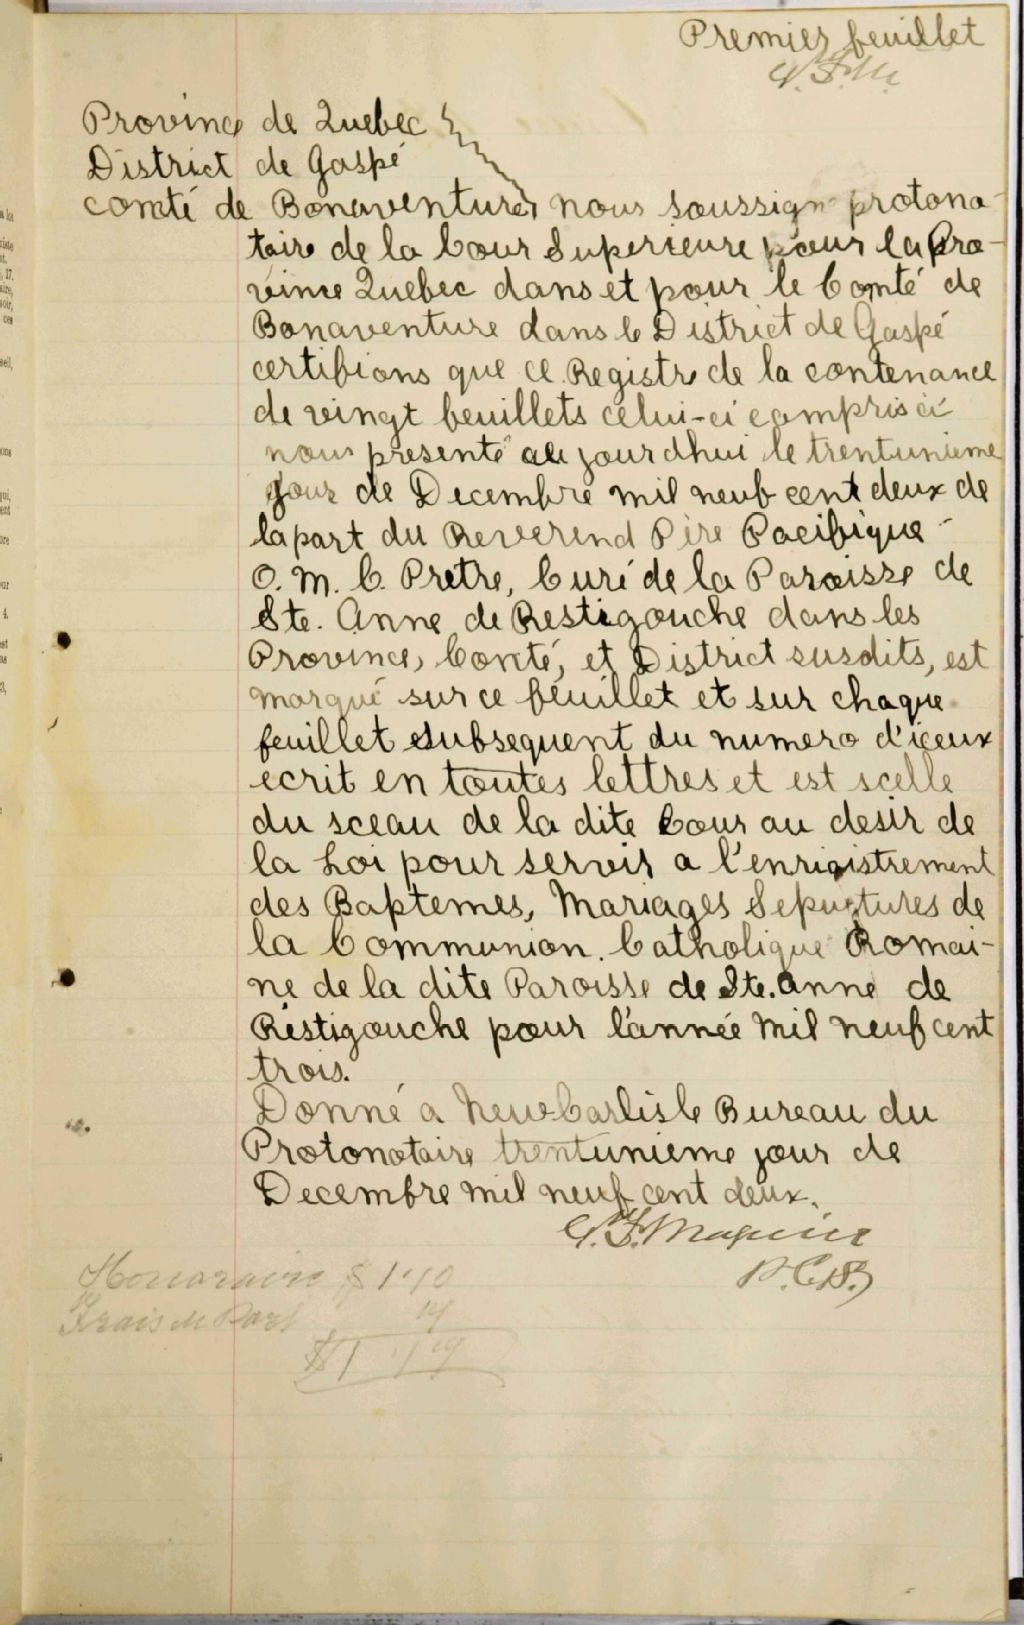 Premier feuillet
Province de Quebec
District de Gaspé
comté de Bonaventure, nous soussign protono-
taire de la Cour Superieure pour la Pro-
vince Quebec dans et pour le Comté de
Bonaventure dans le District de Gaspé
certifions que ce Registre de la contenance
de vingt feuillets celui-ci compris ci
nous presenté au jourdhui le trentunieme
jour de Decembre mil neuf cent deux de
la part du Reverend Père Pacifique -
O. M. C. Pretre, Curé de la Paroisse de
Ste. Anne de Restigouche dans les
Province, Comté, et District susdits, est
marqué sur ce feuillet et sur chaque
feuillet subsequent du numero d'iceux
ecrit en toutes lettres et est scelle
du sceau de la dite Cour au desir de
la Loi pour servir a l'enrigistrement
des Baptemes, Mariages Sepultures de
la Communion Catholique Romai-
ne de la dite Paroisse de Ste. Anne de
Restigouche pour l'année mil neuf cent
trois.
Donné a New Carlisle Bureau du
Protonotaire trentunieme jour de
Decembre mil neuf cent deux.
P.C.S.
Honoraire $ 1.10
Frais de Port